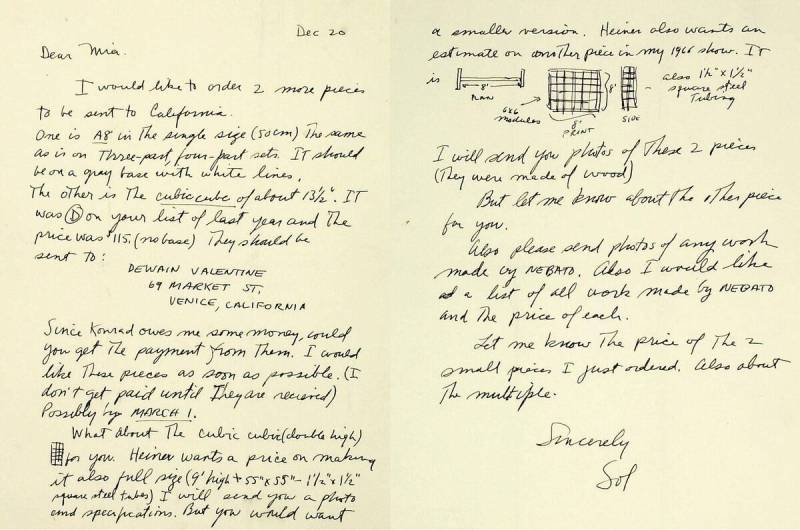 Dec 20
Dear Mia.
I would like to order 2 more pieces
to be sent to California.
One is A8 in the single size (50cm) The same
as is on Three-part, four-part sets. IT should
be on a gray base with white lines.
The other is the cubic cube of about 13½". IT
was D on your list of last year and the
price was $115. (no base) They should be
sent to:
DEWAIN VALENTINE
69 MARKET ST.
VENICE, CALIFORNIA
Since Konrad owes me some money, could
you get the payment from them. I would
like these pieces as soon as possible. (I
don't get paid until they are recieved)
Possibly by MARCH 1.
What about the cubic cubic (double high)
for you. Heiner wants a price on making
it also full size (9' high + 55" x 55" - 1½" x 1½"
square steel tubes) I will send you a photo
and specifications. But you would want
a smaller version. Heiner also wants an
estimate on another piece in my 1966 show. IT
is
8'
PLAN
6x6
modules
8'
8'
FRONT
SIDE
also 1½" x 1½"
square steel
Tubing
I will send you photos of These 2 pieces
(They were made of wood)
But let me know about the other piece
for you.
Also please send photos of any work
made by NEBATO. Also I would like
a list of all work made by NEBATO
and the price of each.
Let me know the price of the 2
small pieces I just ordered. Also about
the multiple.
Sincerely
Sol